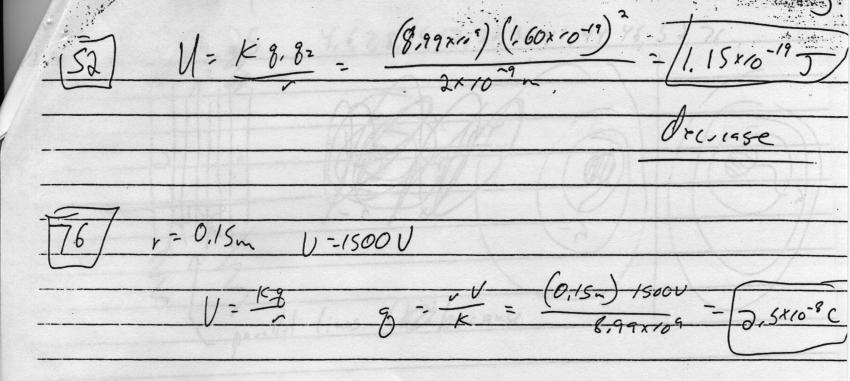 52 U = K q1 q2 / r = (8.99x10^9) (1.60x10^-19)^2 / 2x10^-9 m. = 1.15x10^-19 J
decrease
76 r = 0.15m V = 1500 V
V = Kq / r q = r V / K = (0.15m) 1500V / 8.99x10^9 = 2.5x10^-8 C